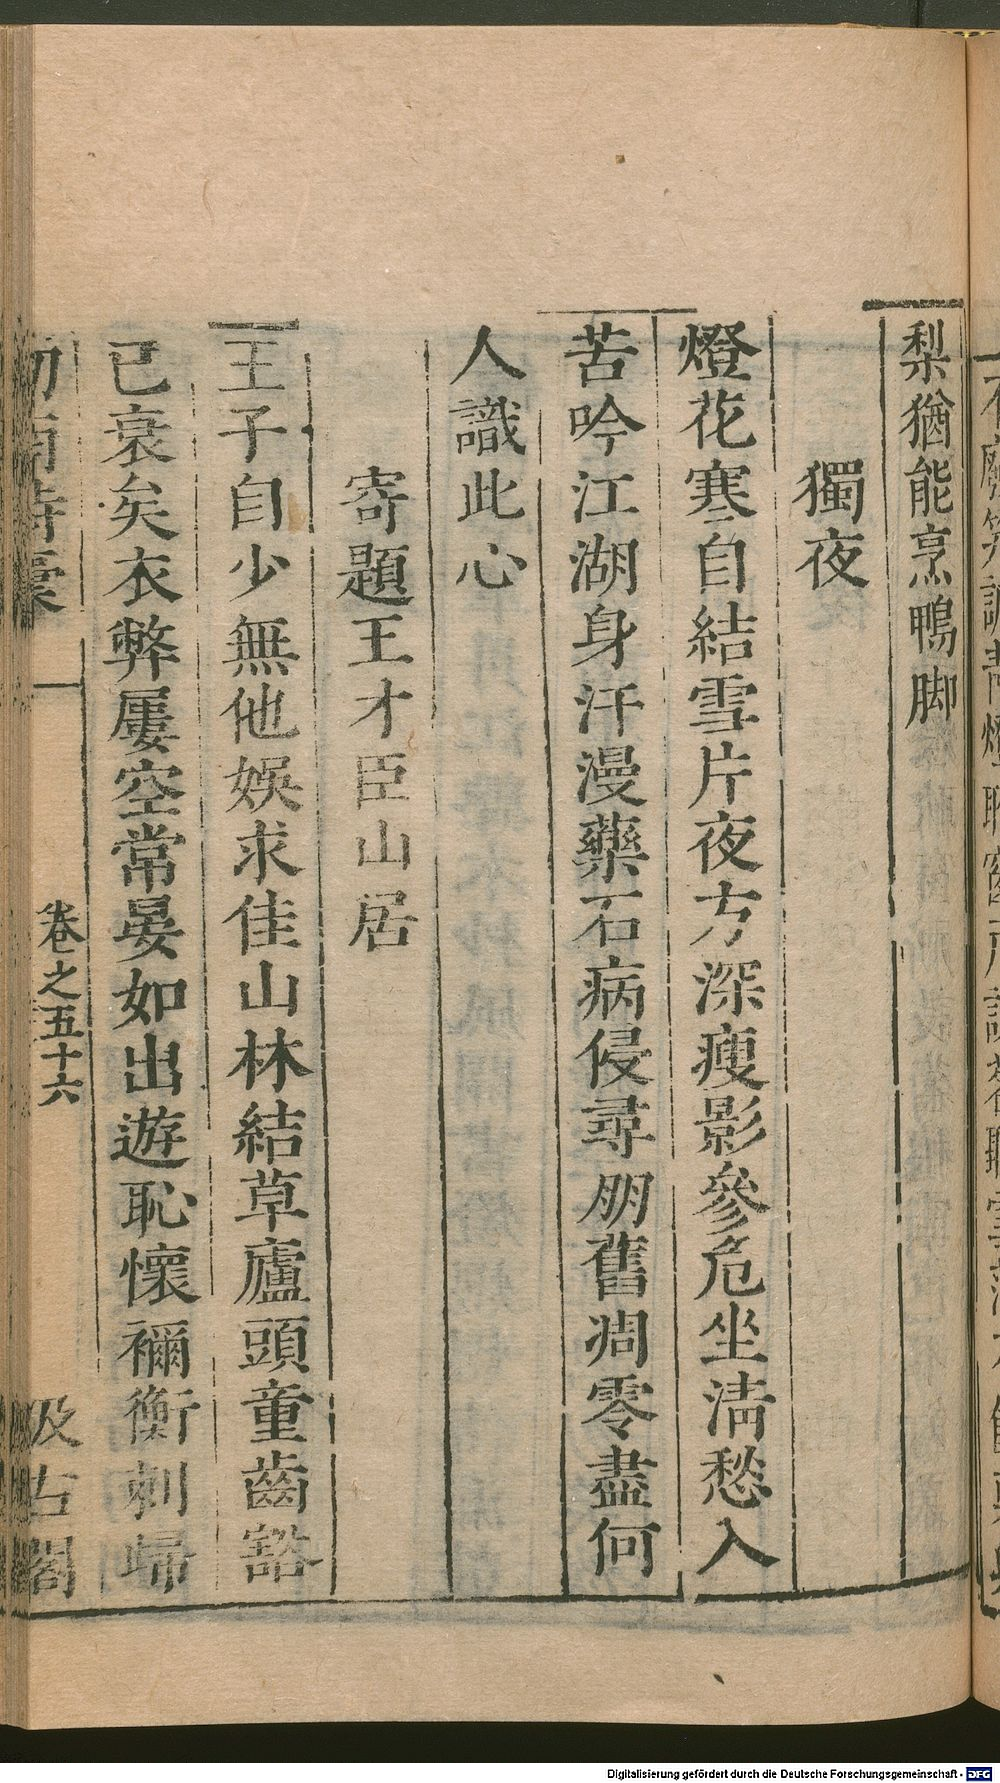 梨猶能烹鴨脚
獨夜
燈花寒自結雪片夜方深瘦影參危坐淸愁入
苦吟江湖身汗漫藥石病侵尋朋舊凋零盡何
人識此心
寄題王才臣山居
王子自少無他娛求佳山林結草廬頭童齒豁
已衰矣衣弊屢空常晏如出遊恥懷禰衡刺歸
劍南詩稾 卷之五十六 汲古閣
Digitalisierung gefördert durch die Deutsche Forschungsgemeinschaft - DFG